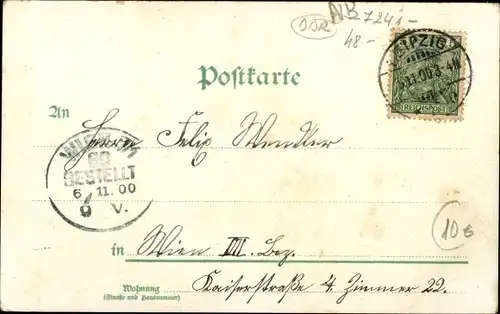 DDR
NB
7241-
48.-
LEIPZIG
.11.00 3-4N
REICHSPOST
Postkarte
An
Herrn Felix Wendler
WIEN
BESTELLT
6. 11. 00
9 V.
10€
in Wien VII. Bez.
Wohnung
(Straße und Hausnummer)
Kaiserstraße 4 Zimmer 22.